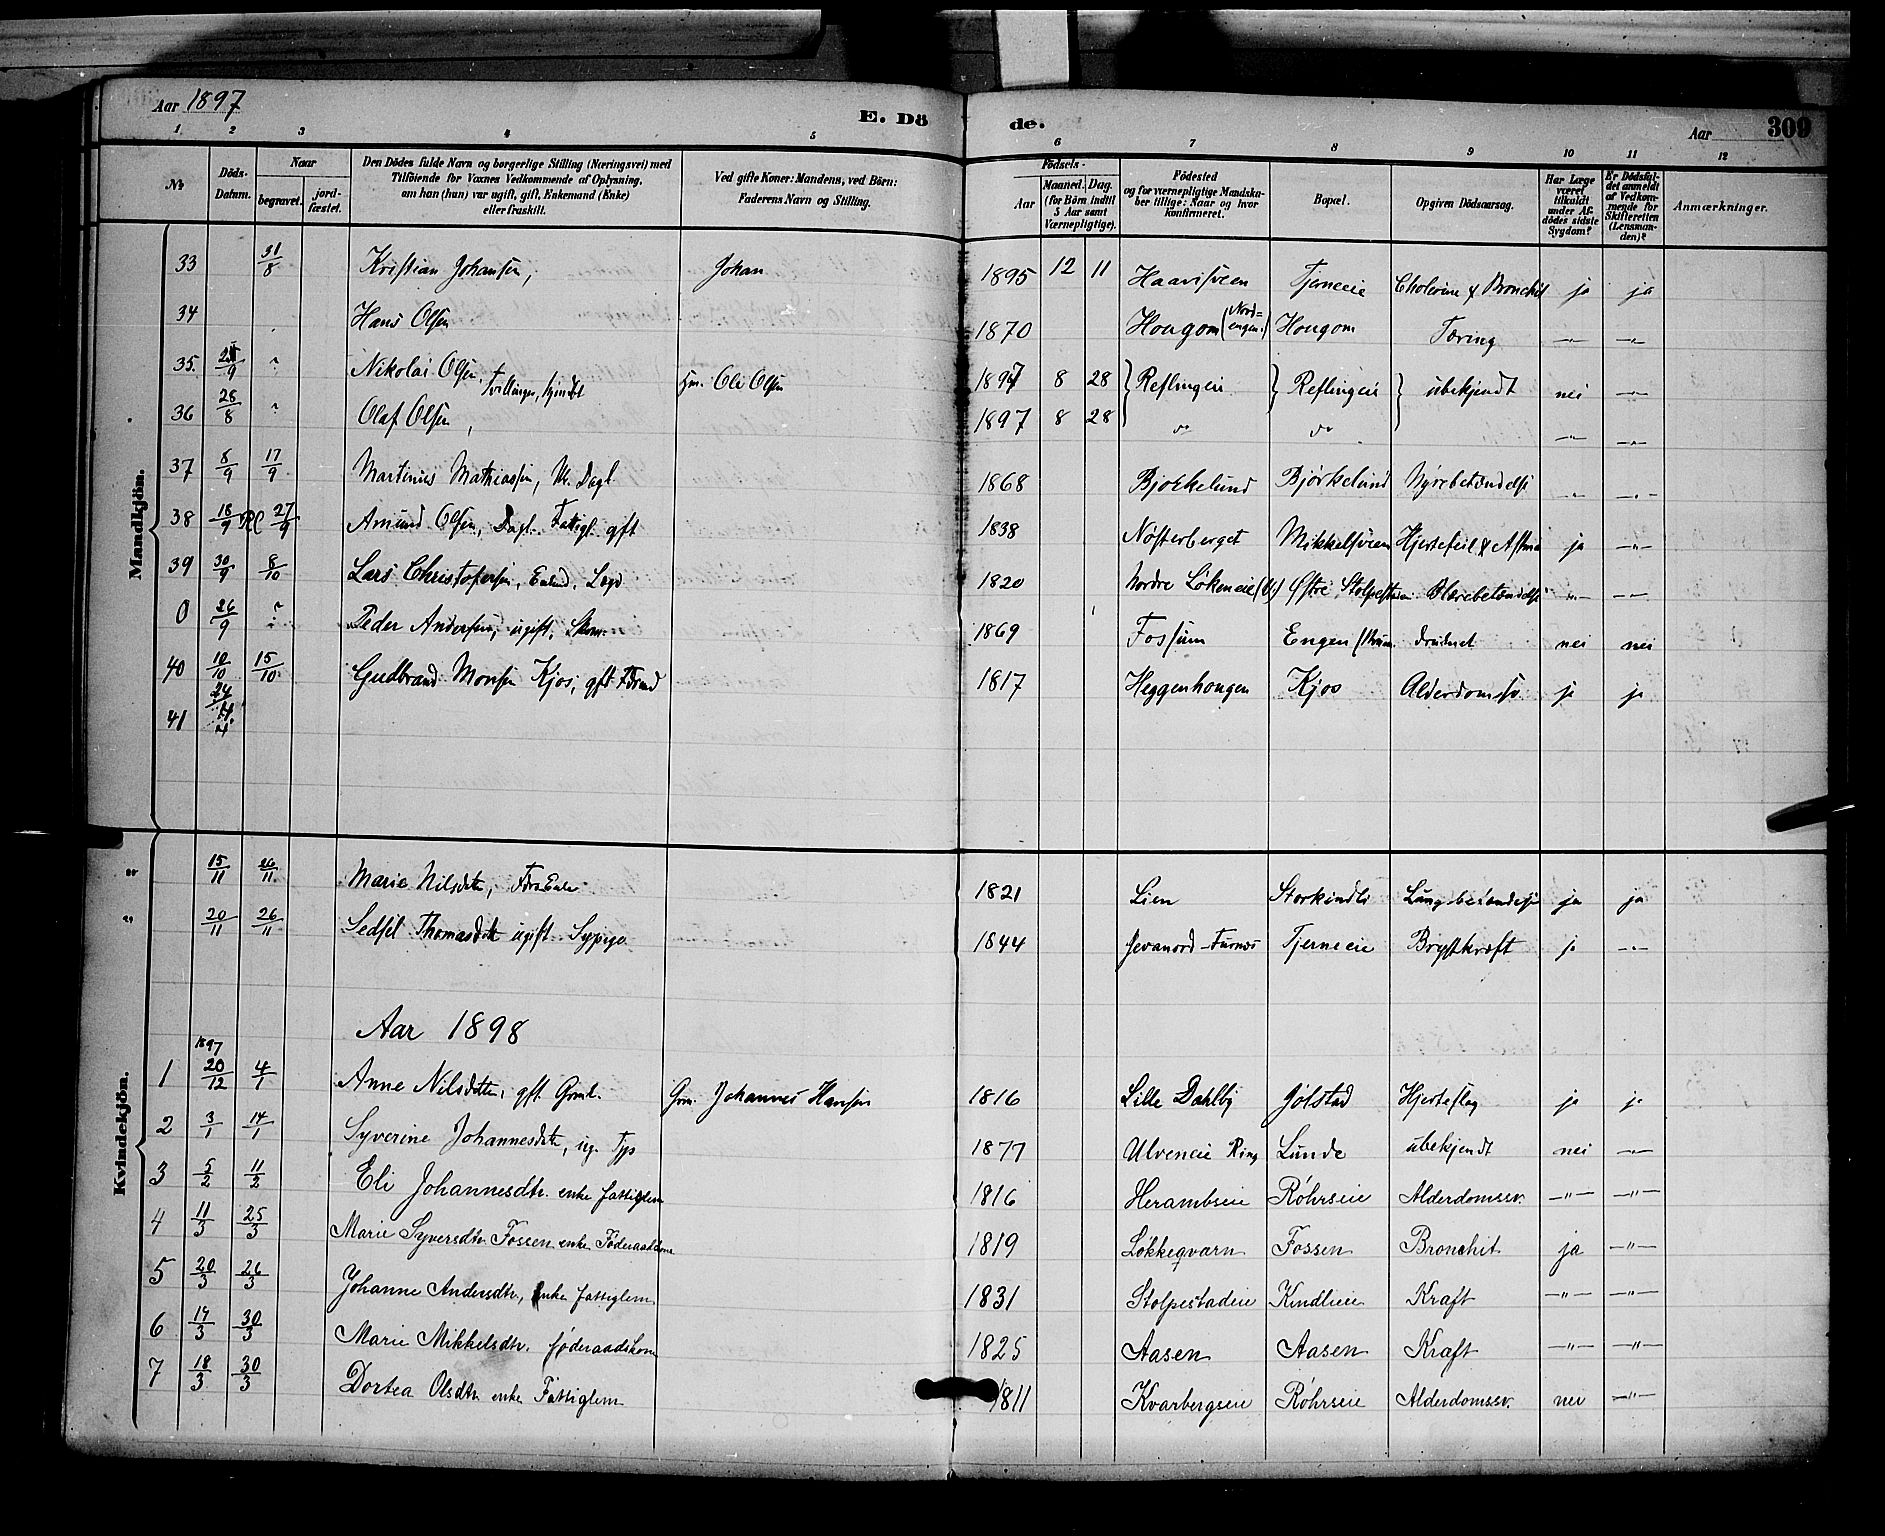 Aar 1897
E. Dö de.
Aar 309
1 2 3 4 5 6 7 8 9 10 11 12
№
Döds-Datum.
Naar
begravet. jordfæstet.
Den Dödes fulde Navn og borgerlige Stilling (Næringsvei) med Tilföiende for Voxnes Vedkommende af Oplysning, om han (hun) var ugift, gift, Enkemand (Enke) eller fraskilt.
Ved gifte Koner: Mandens, ved Börn: Faderens Navn og Stilling.
Födsels-
Aar Maaned. Dag.
(for Börn indtil 5 Aar samt Værnepligtige).
Födested og for værnepligtige Mandskaber tillige: Naar og hvor konfirmeret.
Bopæl.
Opgiven Dödsaarsag.
Har Læge været tilkaldt under Afdödes sidste Sygdom?
Er Dödsfaldet anmeldt af Vedkommende for Skifteretten (Lensmanden)?
Anmærkninger.
Mandkjön.
33 31/8 Kristian Johansen, Johan 1895 12 11 Haavisveen Tjerneeie Cholerine & Bronchit ja ja
34 Hans Olsen 1870 Hougom (Nordengen) Hougom Tæring -"- -"-
35. ? Nikolai Olsen, Tvillinger, Ole Olsen 1897 8 28 Reflingeie Reflingeie ubekjendt nei -"-
36 28/8 ? Olaf Olsen, 1897 8 28 -"- -"-
37 8/9 17/9 Martinius Mathiassen, Dagl. 1868 Bjørkelund Bjørkelund Nyrebetændelse -"- -"-
38 18/9 27/9 Amund Olsen, Dagl. Fattigl. gift 1838 Nøsterberget Mikkelsveen Hjertefeil & Astma ja -"-
39 30/9 8/10 Lars Christofersen, Enkem. Lægd 1820 Nordre Løkeneie Østre Blærebetændelse -"- -"-
0 26/9 ? Peder Andersen, ugift, Skom. 1869 Fossum Engen druknet nei nei
40 10/10 15/10 Gudbrand Monsen Kjos, gift 1817 Heggenhougen Kjos Alderdomssv. ja ja
41
Kvindekjön.
" 15/11 /11 Marie Nilsdtr, 1821 Lien Storkindli Lungebetændelse ja ja
" 20/11 26/11 Sedsel Thomasdtr ugift Sypige 1844 Jevanord - Furnes Tjerneeie Brystkræft ja -"-
Aar 1898
1 1897 20/12 4/1 Anne Nilsdatter, gift Grmd. Grm. Johannes Hansen 1816 Lille Dahlby Jølstad Hjerteslag ja ja
2 3/1 14/1 Syverine Johannesdtr, ug. 1877 Ulveneie Ring Lunde ubekjendt nei -"-
3 5/2 11/2 Eli Johannesdtr. enke fattiglem 1816 Herambseie Røhrseie Alderdomssv. -"- -"-
4 11/3 25/3 Marie Syversdtr Fossen enke Føderaadskone 1819 Løkkeqvarn Fossen Bronchit ja -"-
5 20/3 26/3 Johanne Andersdtr, enke fattiglem 1831 Stolpestadeie Kindlieie Kraft -"- -"-
6 14/3 30/3 Marie Mikkelsdtr. føderaadskone 1825 Aasen Aasen Kraft -"- -"-
7 18/3 30/3 Dortea Olsdtr enke Fattiglem 1811 Kvarbergseie Røhrseie Alderdomssv. nei -"-